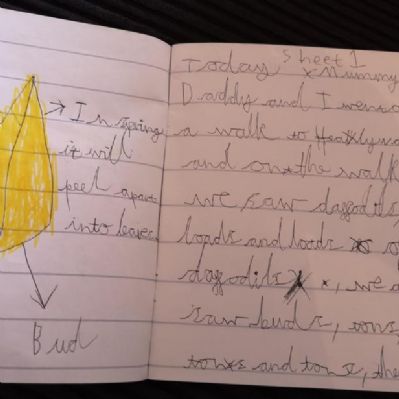 In spring
it will
peel apart
into leaves
Bud
Sheet 1
Today Mummy
Daddy and I went o
a walk to
and on the walk
we saw daffodils,
loads and loads o
daffodils, we a
saw buds, tons,
tons and tons, the